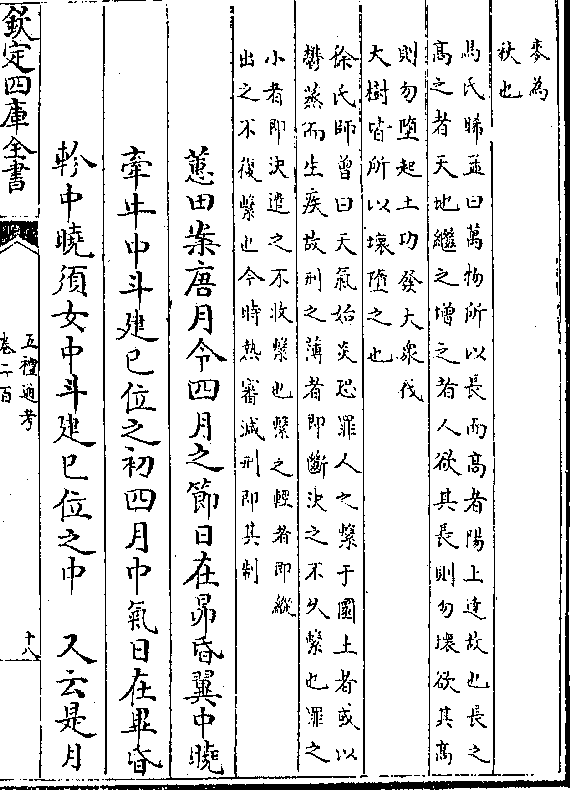 麥為
秋也
馬氏睎孟曰萬物所以長而高者陽上達故也長之
高之者天地繼之增之者人欲其長則勿壞欲其高
則勿墮起土功發大衆伐
大樹皆所以壞墮之也
徐氏師曾曰天氣始炎恐罪人之繫于圜土者或以
鬱蒸而生疾故刑之薄者即斷決之不久繫也罪之
小者即決遣之不收繫也繫之輕者即縱
出之不復繫也今時熱審減刑即其制
蕙田案唐月令四月之節日在昴昏翼中曉
牽牛中斗建巳位之初四月中氣日在畢昏
軫中曉須女中斗建巳位之中 又云是月
欽定四庫全書
五禮通考
卷二百
十八